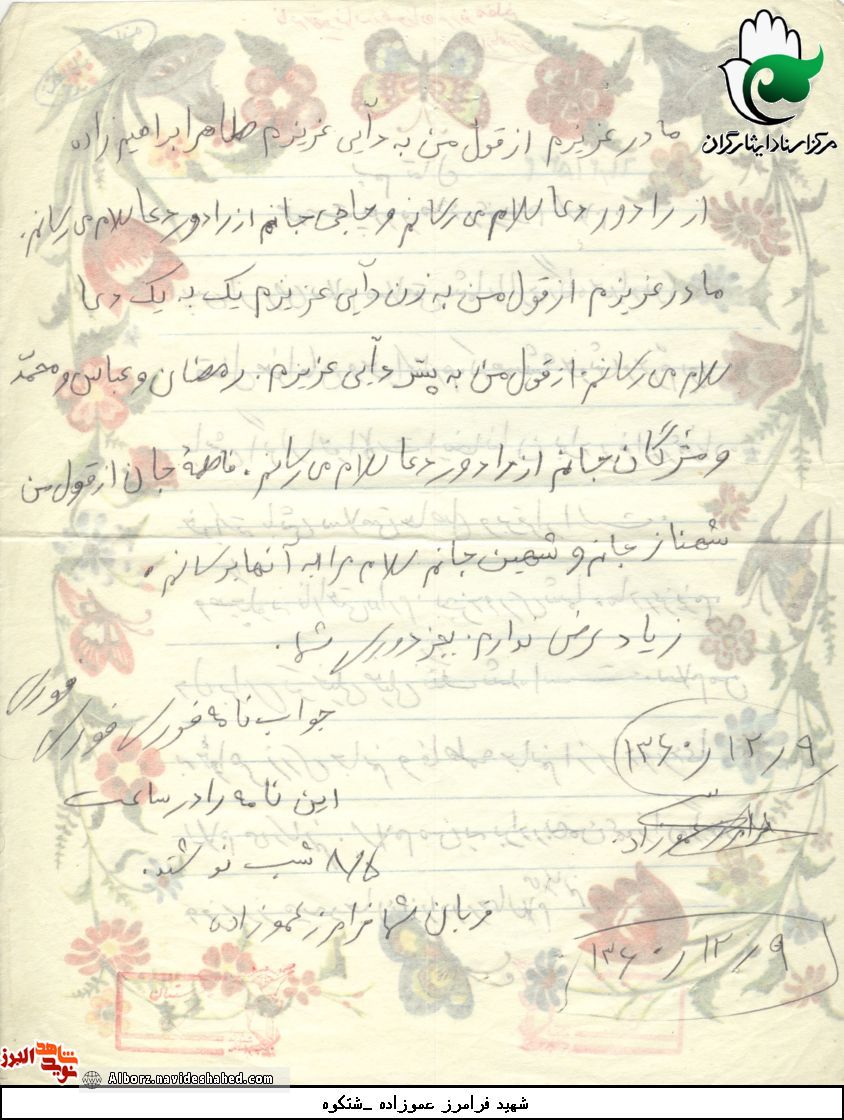 مرکز اسناد ایثارگران
مادر عزیزم از قول من به دآیی عزیزم طاهر ابراهیم زاده
از راه دور دعا سلام می رسانم و حاجی جانم از راه دور دعا سلام می رسانم.
مادر عزیزم از قول من به زن دآیی عزیزم یک به یک دعا
سلام می رسانم. از قول من به پسر دآیی عزیزم. رمضان و عباس و محمد
و مژگان جانم از راه دور دعا سلام می رسانم. فاطمهٔ جان از قول من
شهناز جانم و شهین جانم سلام مرا به آنها برسانم.
زیاد عرضی ندارم. بجز دوری شما.
جواب نامه فوری فوری فوری
۱۳۶۰/۱۲/۹
این نامه را در ساعت
شب نوشتم.
قربان شما فرامرز عموزاده
۱۳۶۰/۱۲/۹
نوید شاهد البرز
Alborz.navideshahed.com
شهید فرامرز عموزاده _شتکوه